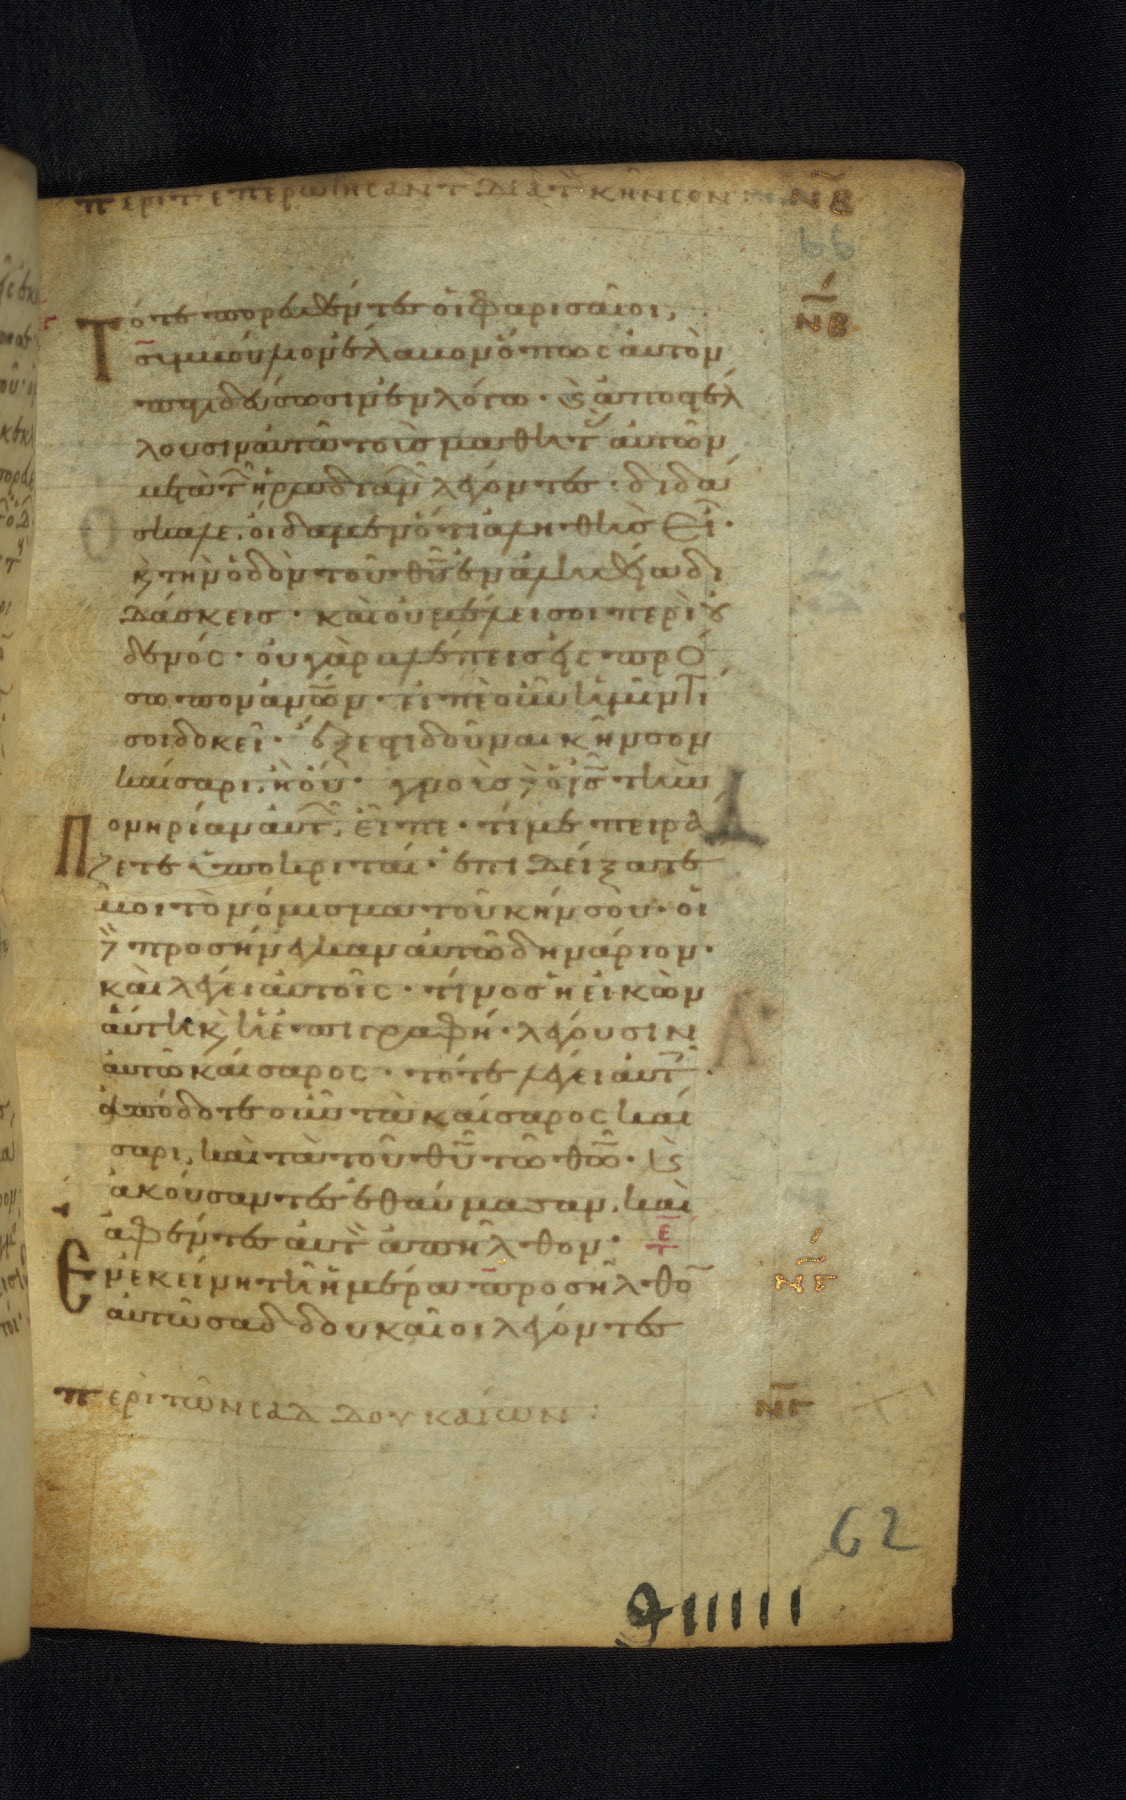 περι τ επερωτησαντ δια τ κηνσον: ΝΒ
66
Τότε πορευθέντες οἱ φαρισαῖοι, ΝΒ
συμβούλιον ἔλαβον ὅπως αὐτὸν
παγιδεύσωσιν ἐν λόγω · κ ἀποστέλ
λουσιν αὐτῶ τοὺς μαθητ αὐτῶν
μετὰ τ ἡρωδιαν λέγοντες · διδά
σκαλε, οἴδαμεν ὅτι ἀληθὴς εἶ ·
κ τὴν ὁδὸν τοῦ θυ ἐν ἀληθεία δι
δάσκεις · καὶ οὐ μέλει σοι περὶ οὐ
δενός · οὐ γὰρ βλέπεις εἰς πρό
σωπον ἀνων · εἰπὲ οὖν ἡμῖν τί
σοι δοκεῖ · ἔξεστι δοῦναι κῆνσον
καίσαρι, ἢ οὔ · γνοὺς δὲ ὁ ις τὴν
πονηρίαν αὐτ, εἶπε · τί με πειρά
ζετε ὑποκριταί · ἐπιδείξατέ
μοι τὸ νόμισμα τοῦ κήνσου · οἱ
δὲ προσήνεγκαν αὐτῶ δηνάριον ·
καὶ λέγει αὐτοῖς · τίνος ἡ εἰκὼν
αὕτη κ ἡ ἐπιγραφή · λέγουσιν
αὐτῶ καίσαρος · τότε λέγει αὐτ ·
ἀπόδοτε οὖν τὰ καίσαρος καί
σαρι, καὶ τὰ τοῦ θυ τῶ θω · κ
ἀκούσαντες ἐθαύμασαν, καὶ
ἀφέντες αὐτ ἀπῆλθον ·
Ἐν ἐκείνη τῆ ἡμέρα προσῆλθο ΝΓ
αὐτῶ σαδδουκαῖοι λέγοντες
περὶ τῶν σαδδουκαίων : ΝΓ
62